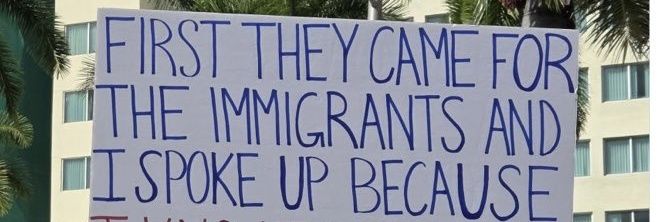 FIRST THEY CAME FOR
THE IMMIGRANTS AND
I SPOKE UP BECAUSE